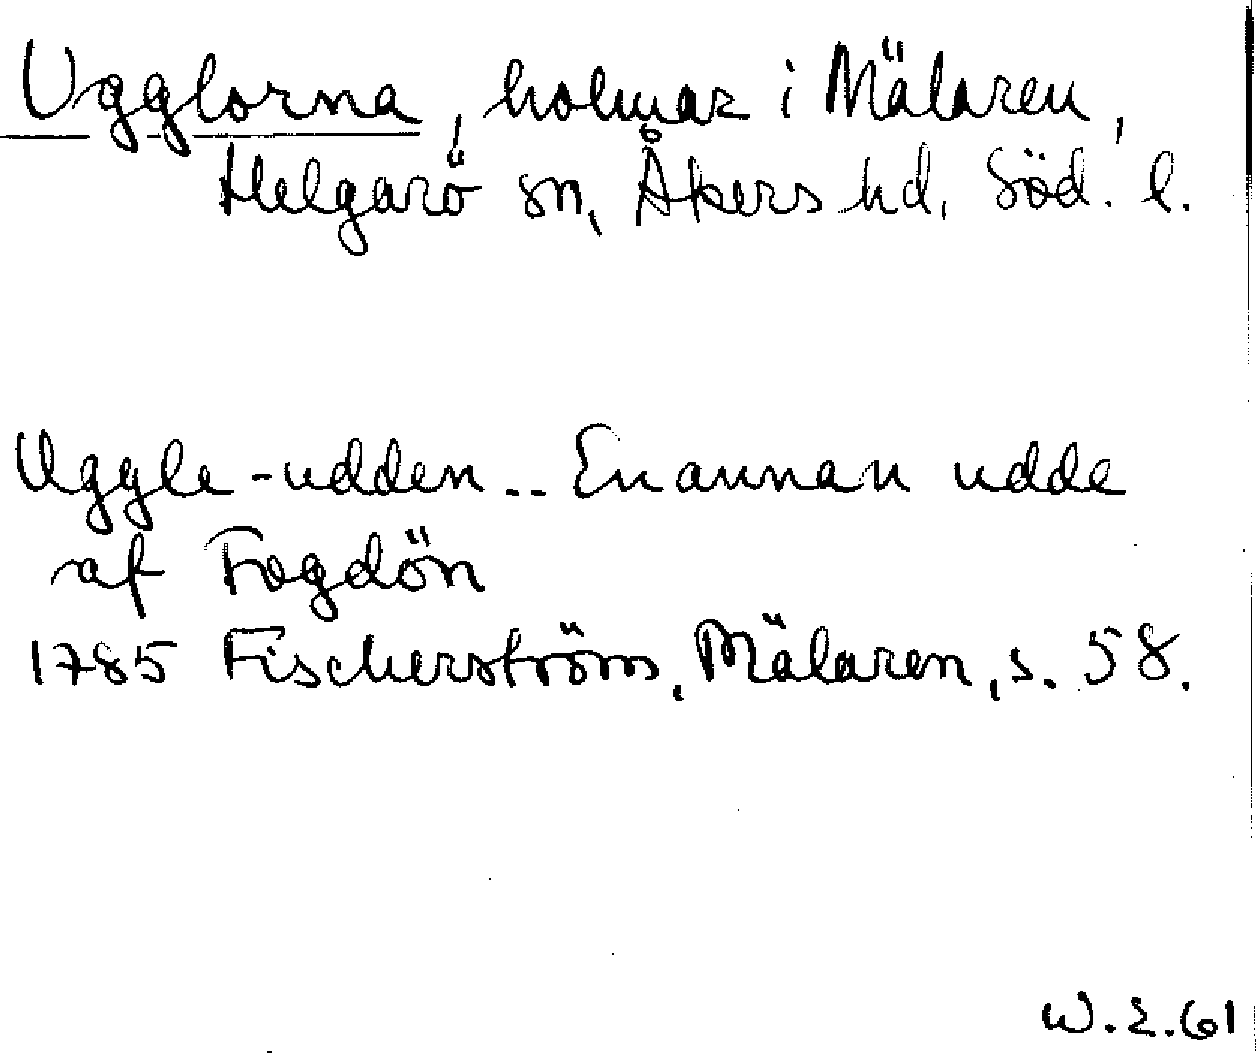 Ugglorna, holmar i Mälaren,
Helgarö sn, Åkers hd, Söd. l.
Uggle-udden .. En annan udde
af Fogdön
1785 Fischerström, Mälaren, s. 58.
W.E.61